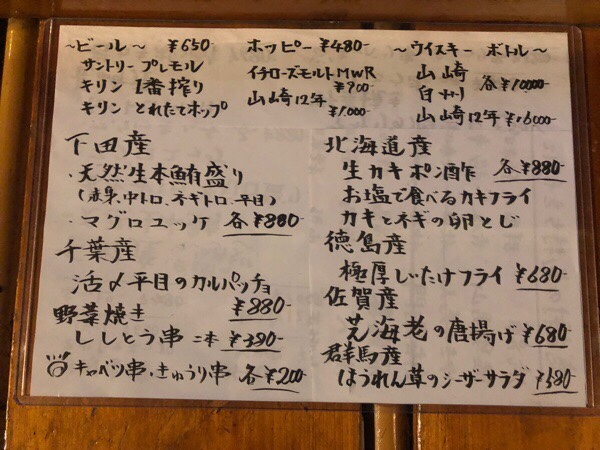 〜ビール〜 ¥650
サントリー プレモル
キリン 1番搾り
キリン とれたてホップ
ホッピー ¥480-
イチローズモルトMWR
¥900
山崎12年
¥1,000-
〜ウイスキー ボトル〜
山崎
白州 各¥10000-
山崎12年 ¥16000-
下田産
・天然生本鮪盛り
(赤身、中トロ、ネギトロ、平目)
・マグロユッケ 各¥880-
千葉産
活〆平目のカルパッチョ
¥880-
野菜焼き
ししとう串 二本 ¥390-
キャベツ串、きゅうり串 各¥200-
北海道産
生カキポン酢 各¥880-
お塩で食べるカキフライ
カキとネギの卵とじ
徳島産
極厚しいたけフライ ¥680-
佐賀産
芝海老の唐揚げ ¥680-
群馬産
ほうれん草のシーザーサラダ ¥580-